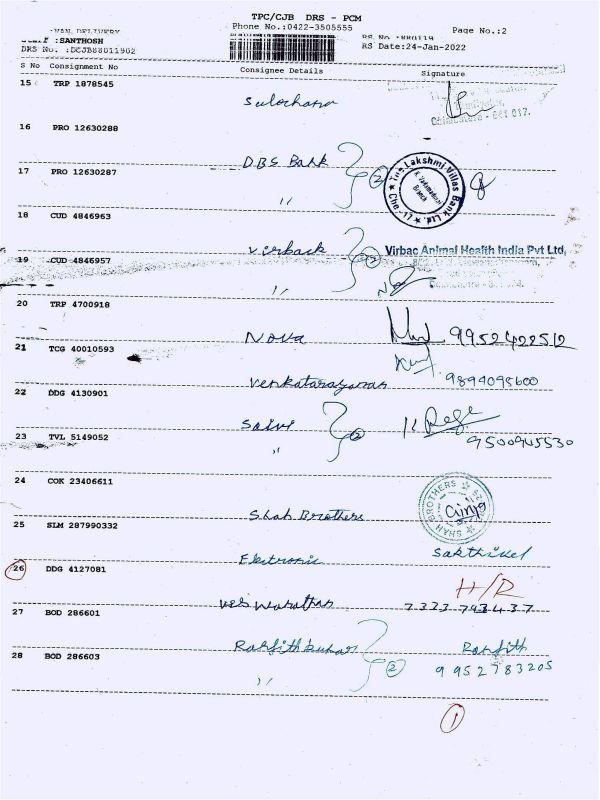 TPC/CJB DRS - PCM
Phone No.:0422-3505555
Page No.:2
:VAN DELIVERY
:SANTHOSH
DRS No. :DCJB88011902
RS Date:24-Jan-2022
S No Consignment No Consignee Details Signature
15 TRP 1878545
Sulochana
16 PRO 12630288
DBS Bank
17 PRO 12630287
2
The Lakshmi Villas Bank Ltd.
Branch
Cbe-17
"
18 CUD 4846963
Virback
Virbac Animal Health India Pvt Ltd,
19 CUD 4846957
2
"
20 TRP 4700918
Nova
9952422512
21 TCG 40010593
9894095600
22 DDG 4130901
23 TVL 5149052
2
"
9500945530
24 COK 23406611
Shah Brothers
SHAH BROTHERS
25 SLM 287990332
Electronic
Sakthivel
26 DDG 4127081
H/R
27 BOD 286601
Ranjithkumar
Ranjith
28 BOD 286603
2
"
9952783205
1